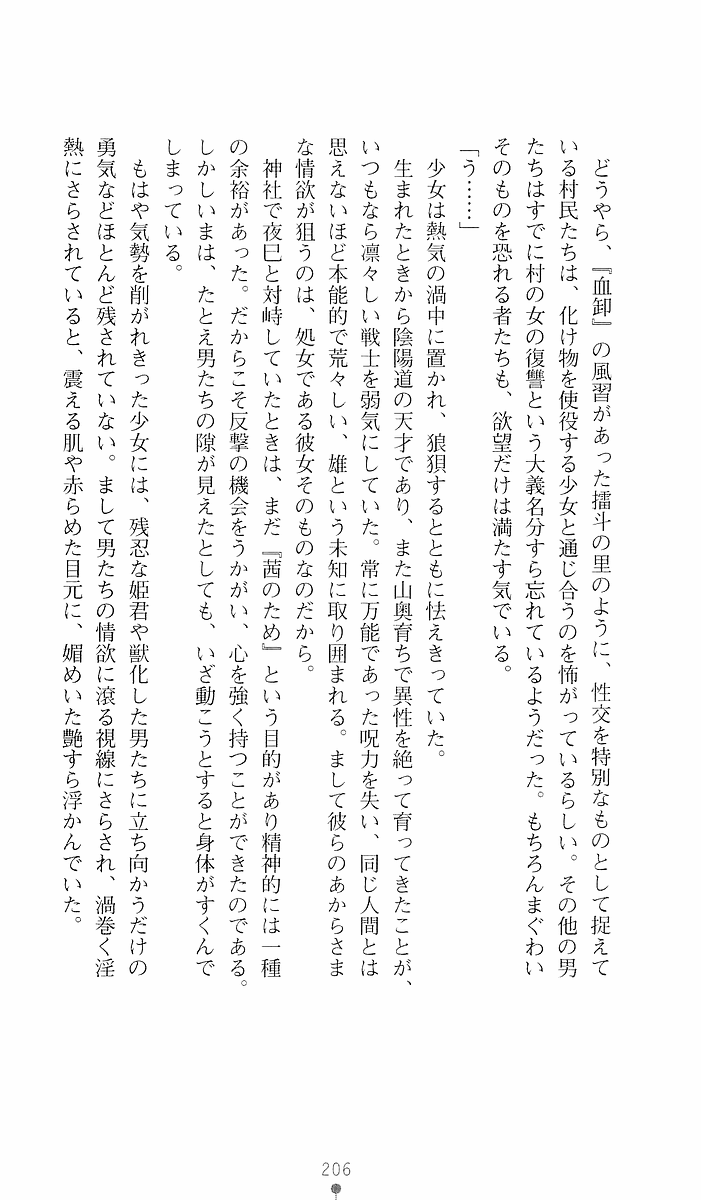 どうやら、『血卸』の風習があった擂斗の里のように、性交を特別なものとして捉えて
いる村民たちは、化け物を使役する少女と通じ合うのを怖がっているらしい。その他の男
たちはすでに村の女の復讐という大義名分すら忘れているようだった。もちろんまぐわい
そのものを恐れる者たちも、欲望だけは満たす気でいる。
「う……」
少女は熱気の渦中に置かれ、狼狽するとともに怯えきっていた。
生まれたときから陰陽道の天才であり、また山奥育ちで異性を絶って育ってきたことが、
いつもなら凛々しい戦士を弱気にしていた。常に万能であった呪力を失い、同じ人間とは
思えないほど本能的で荒々しい、雄という未知に取り囲まれる。まして彼らのあからさま
な情欲が狙うのは、処女である彼女そのものなのだから。
神社で夜巳と対峙していたときは、まだ『茜のため』という目的があり精神的には一種
の余裕があった。だからこそ反撃の機会をうかがい、心を強く持つことができたのである。
しかしいまは、たとえ男たちの隙が見えたとしても、いざ動こうとすると身体がすくんで
しまっている。
もはや気勢を削がれきった少女には、残忍な姫君や獣化した男たちに立ち向かうだけの
勇気などほとんど残されていない。まして男たちの情欲に滾る視線にさらされ、渦巻く淫
熱にさらされていると、震える肌や赤らめた目元に、媚めいた艶すら浮かんでいた。
206